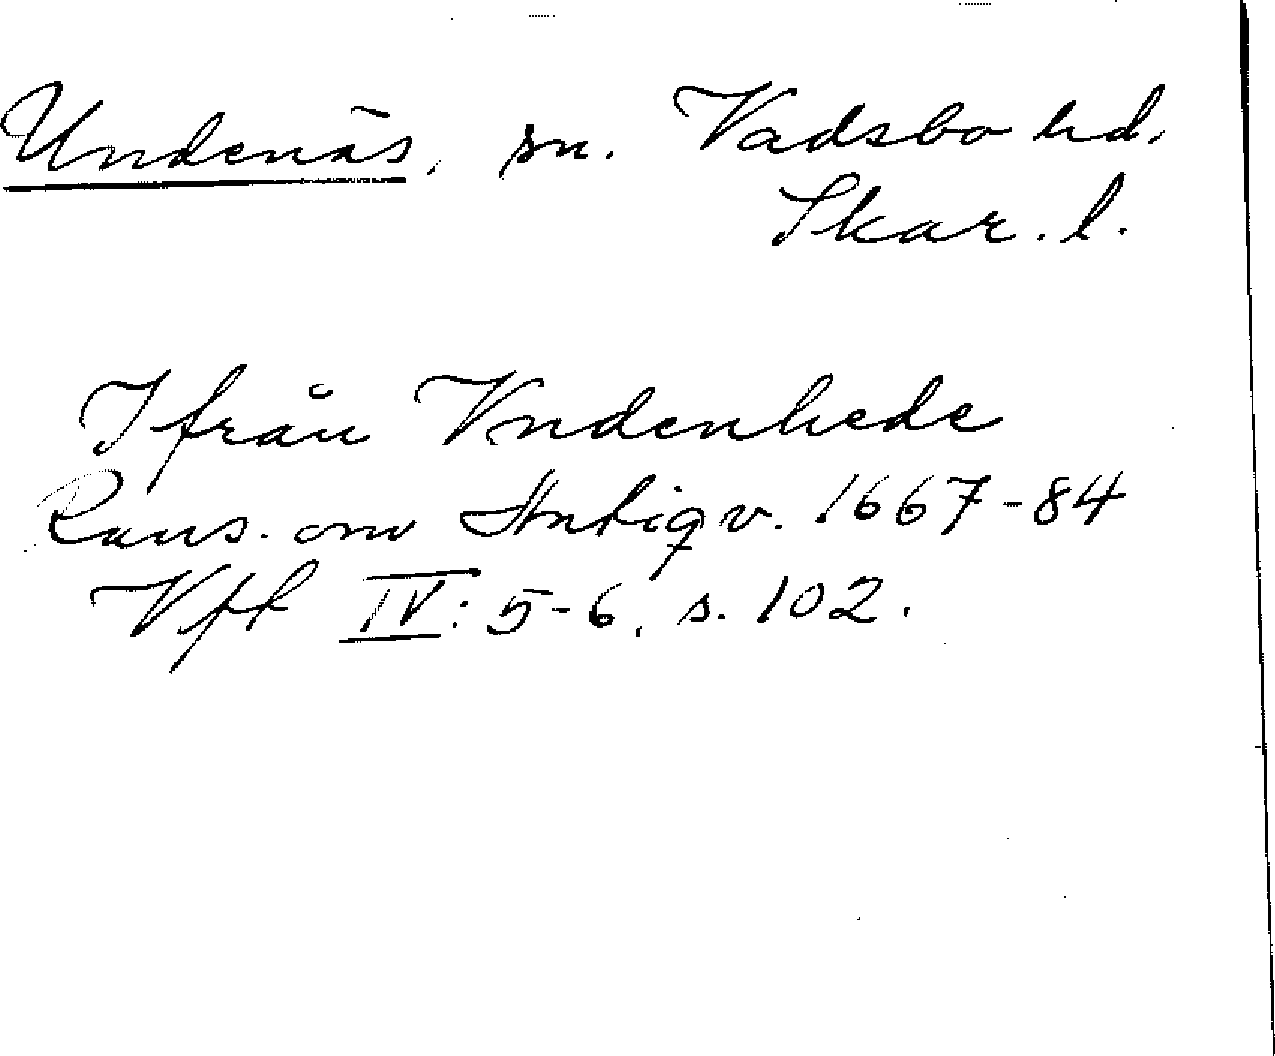 Undenäs, sn. Vadsbo hd.
Skar. l.
Ifrån Vndenhede
Rans. om Antiqv. 1667-84
Vfk IV: 5-6, s. 102.